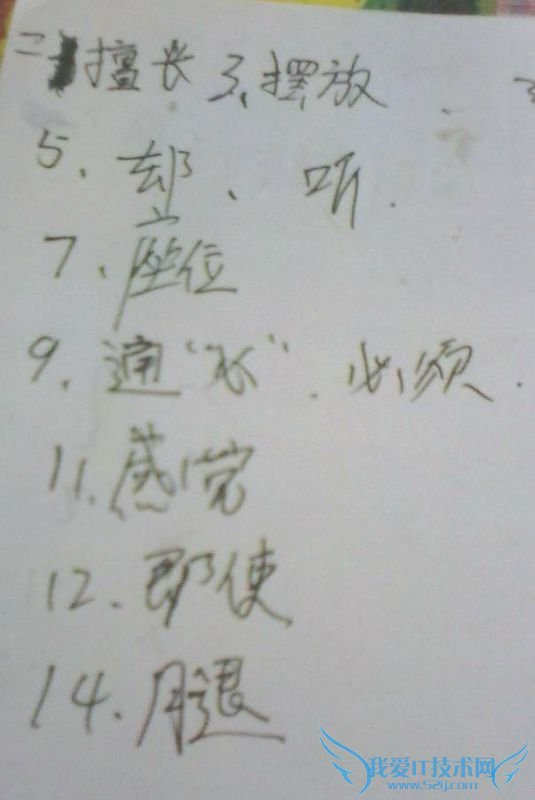 二 擅长 3、摆放
5、却、听.
7、座位
9、通"水".必须.
11.感觉
12.即使
14.腿
我爱IT技术网
www.52ij.com